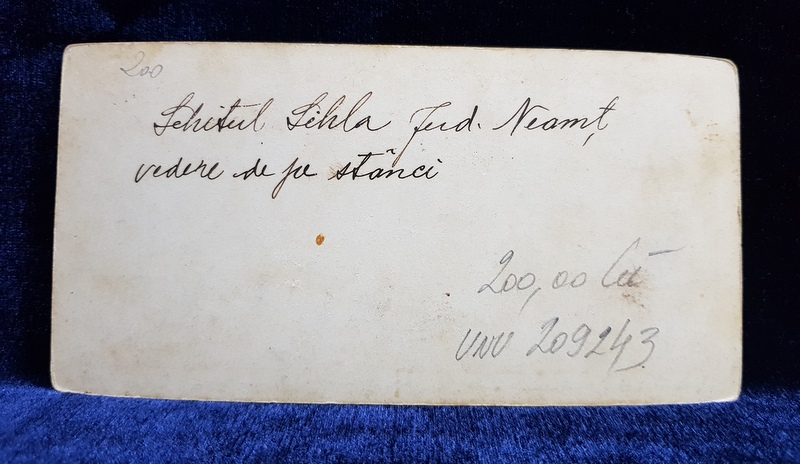 200
Schitul Sihla Jud. Neamț
vedere de pe stânci
200,00
VNV 209243